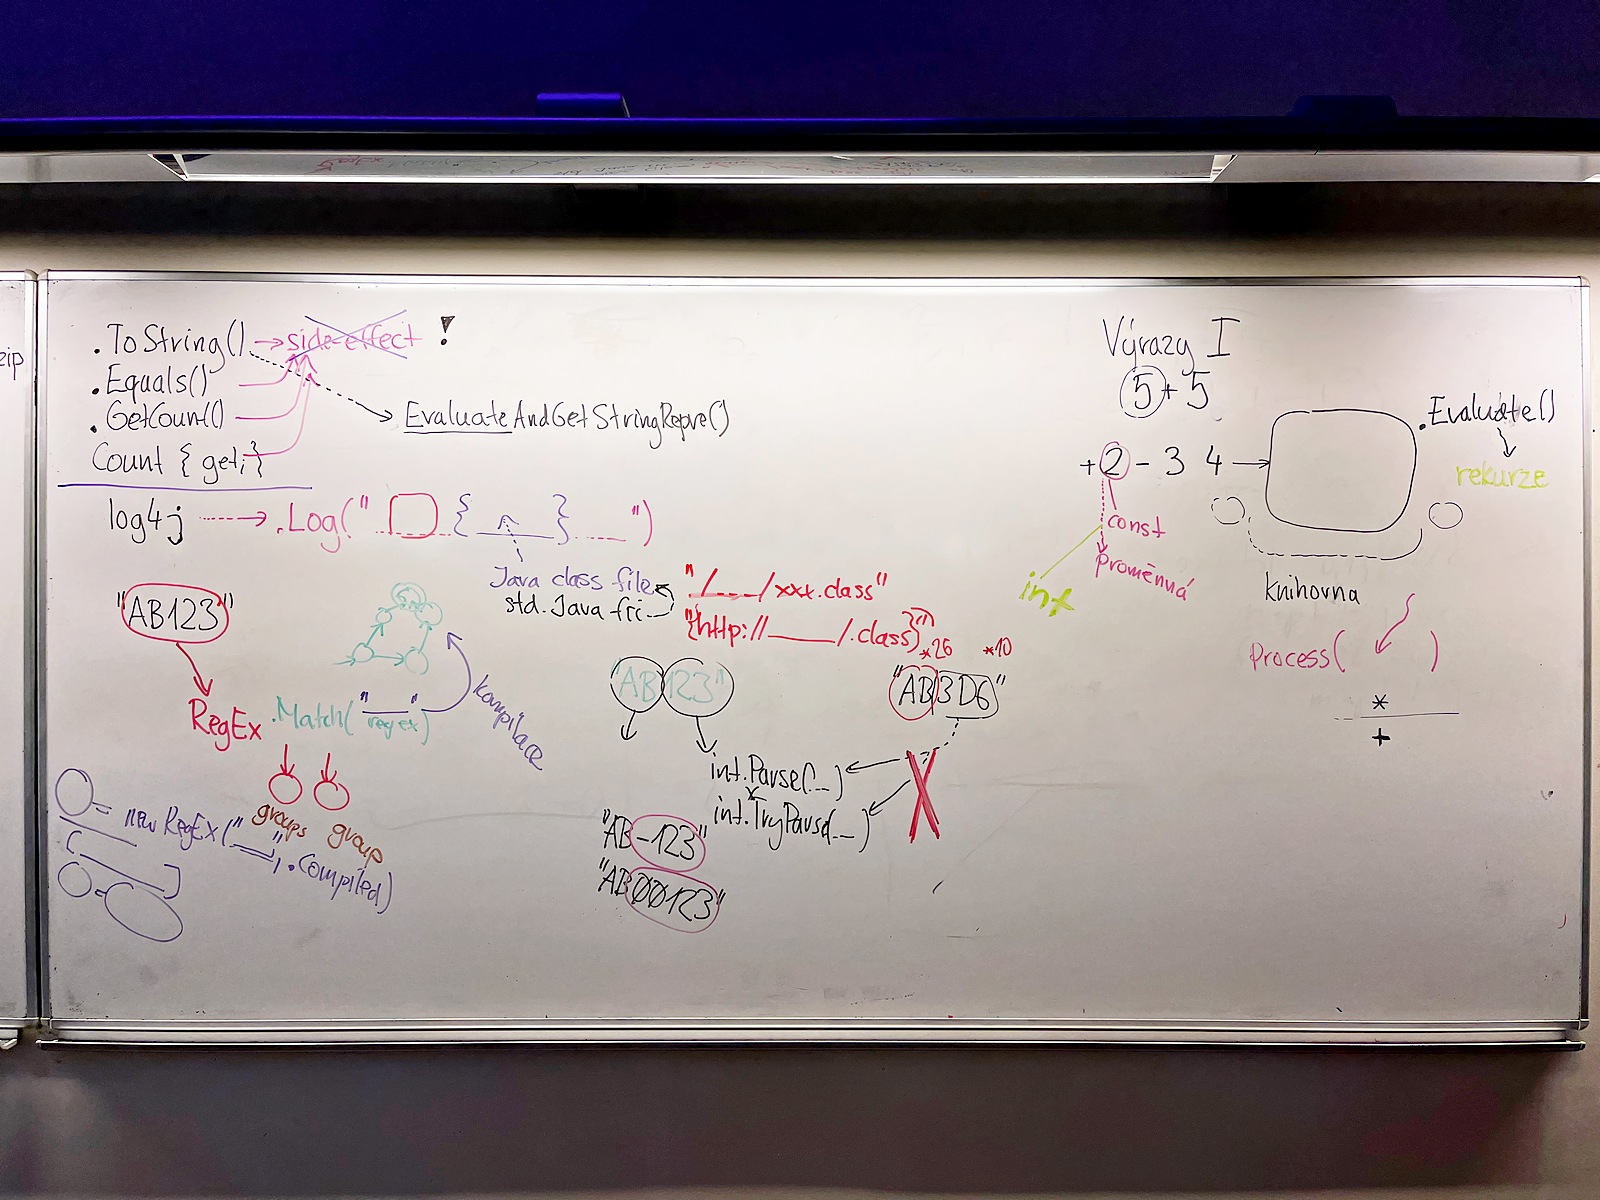 eip
.ToString() → side-effect !
.Equals()
.GetCount()
EvaluateAndGetStringRepre()
Count { get; }
log4j → .Log(" { } ")
Java class file
std. Java fri
"/___/xxx.class"
"{http://____/.class}"
"AB123"
RegEx .Match("regex")
kompilace
groups group
= new RegEx("__", .Compiled)
=
"AB123"
*26 *10
"AB3D6"
int.Parse(...)
int.TryParse(...)
"AB-123"
"AB00123"
Výrazy I
5 + 5
+ 2 - 3 4 →
const
proměnná
int
.Evaluate()
rekurze
knihovna
Process( )
*
+